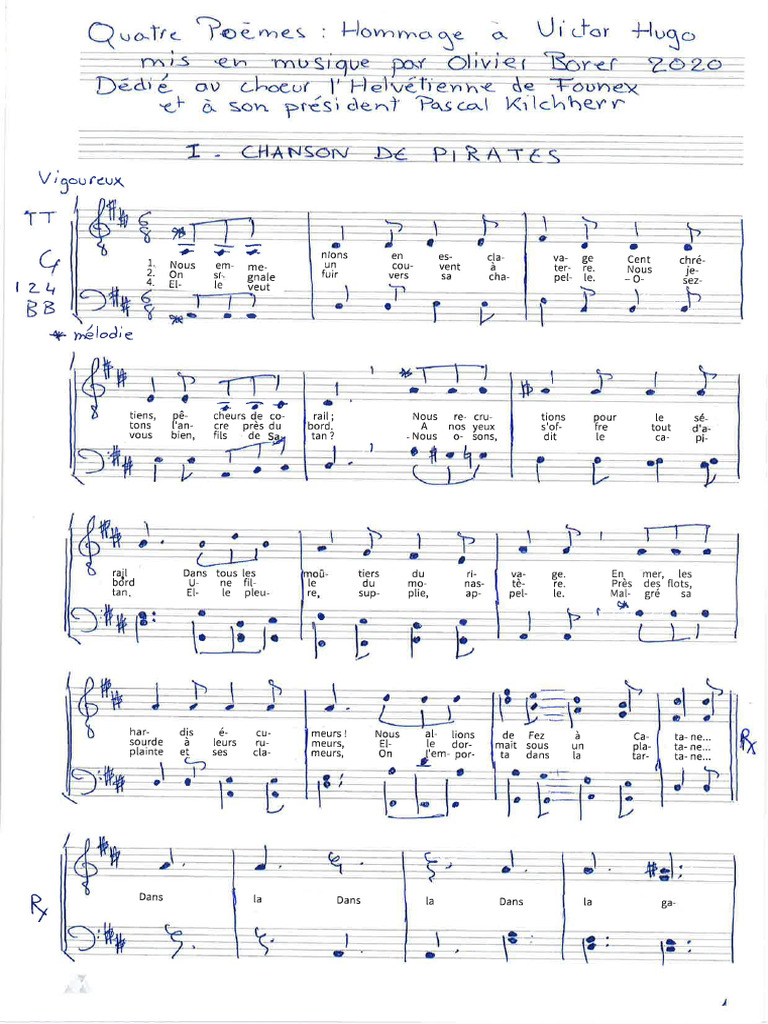 Quatre Poèmes : Hommage à Victor Hugo
mis en musique par Olivier Borer 2020
Dédié au choeur l'Helvétienne de Founex
et à son président Pascal Kilchherr
I. CHANSON DE PIRATES
Vigoureux
TT
1. Nous em- me- nîons en es- cla- va- ge Cent chré-
2. On si- gnale un cou- vent à ter- re. Nous je-
4. El- le veut fuir vers sa cha- pel- le. - O- sez-
1 2 4
BB
* mélodie
tiens, pê- cheurs de co- rail ; Nous re- cru- tions pour le sé-
tons l'an- cre près du bord. A nos yeux s'of- fre tout d'a-
vous bien, fils de Sa- tan ? - Nous o- sons, dit le ca- pi-
rail Dans tous les moû- tiers du ri- va- ge. En mer, les
bord U- ne fil- le du mo- nas- tè- re. Près des flots,
tan, El- le pleu- re, sup- plie, ap- pel- le. Mal- gré sa
har- dis é- cu- meurs ! Nous al- lions de Fez à Ca- ta- ne...
sourde à leurs ru- meurs, El- le dor- mait sous un pla- ta- ne...
plainte et ses cla- meurs, On l'em- por- ta dans la tar- ta- ne...
Rx
Rx
Dans la Dans la Dans la ga-
1